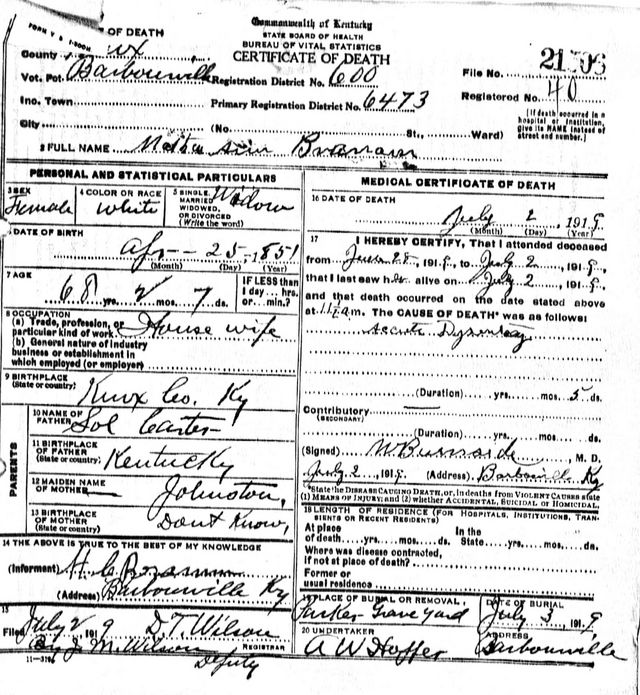 Commonwealth of Kentucky
STATE BOARD OF HEALTH
BUREAU OF VITAL STATISTICS
CERTIFICATE OF DEATH
OF DEATH
County
Vot. Pct. Barbourville Registration District No. 600
File No. 21
Registered No. 40
Inc. Town Primary Registration District No. 6473
[If death occurred in a hospital or institution, give its NAME instead of street and number.]
City (No. St., Ward)
2 FULL NAME
PERSONAL AND STATISTICAL PARTICULARS
3 SEX Female
4 COLOR OR RACE White
5 SINGLE, MARRIED, WIDOWED, OR DIVORCED (Write the word) Widow
6 DATE OF BIRTH
Apr 25, 1851
(Month) (Day) (Year)
7 AGE
68 yrs. 2 mos. 7 ds.
IF LESS than 1 day... hrs. or... min.?
8 OCCUPATION
(a) Trade, profession, or particular kind of work House wife
(b) General nature of industry
business or establishment in
which employed (or employer)
9 BIRTHPLACE
(State or country) Knox Co. Ky
PARENTS
10 NAME OF FATHER Sol Carter
11 BIRTHPLACE OF FATHER (State or country) Kentucky
12 MAIDEN NAME OF MOTHER Johnston,
13 BIRTHPLACE OF MOTHER (State or country) Dont Know,
14 THE ABOVE IS TRUE TO THE BEST OF MY KNOWLEDGE
(Informent)
(Address) Barbourville Ky
15
Filed July 2 1919 D.T. Wilson
REGISTRAR
By J. M. Wilson
Deputy
11-3196
MEDICAL CERTIFICATE OF DEATH
16 DATE OF DEATH
July 2, 1919
(Month) (Day) (Year)
17 I HEREBY CERTIFY, That I attended deceased
from June 28 1919, to July 2, 1919,
that I last saw her alive on July 2, 1919,
and that death occurred on the date stated above
at 11 a.m. The CAUSE OF DEATH* was as follows:
Accute Dysentery
(Duration) yrs. mos. 5 ds.
Contributory
(SECONDARY)
(Duration) yrs. mos. ds.
(Signed) Burnside, M. D.
July 2, 1919 (Address) Barbourville Ky
*State the DISEASE CAUSING DEATH, or, in deaths from VIOLENT CAUSES state
(1) MEANS OF INJURY; and (2) whether ACCIDENTAL, SUICIDAL or HOMICIDAL.
18 LENGTH OF RESIDENCE (FOR HOSPITALS, INSTITUTIONS, TRANSIENTS OR RECENT RESIDENTS)
At place of death yrs. mos. ds. In the State yrs. mos. ds.
Where was disease contracted,
if not at place of death?
Former or
usual residence
19 PLACE OF BURIAL OR REMOVAL Parker Grave yard
DATE OF BURIAL July 3, 1919
20 UNDERTAKER A W Hopper
ADDRESS Barbourville